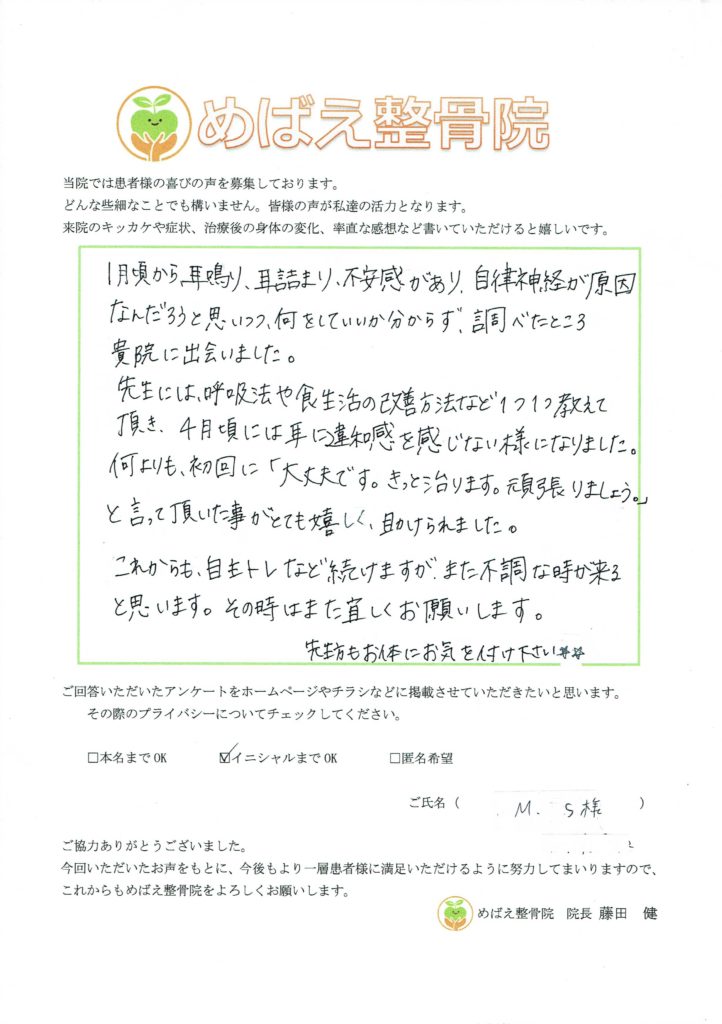 めばえ整骨院
当院では患者様の喜びの声を募集しております。
どんな些細なことでも構いません。皆様の声が私達の活力となります。
来院のキッカケや症状、治療後の身体の変化、率直な感想など書いていただけると嬉しいです。
1月頃から、耳鳴り、耳詰まり、不安感があり、自律神経が原因
なんだろうと思いつつ、何をしていいか分からず、調べたところ
貴院に出会いました。
先生には、呼吸法や食生活の改善方法など1つ1つ教えて
頂き、4月頃には耳に違和感を感じない様になりました。
何よりも、初回に「大丈夫です。きっと治ります。頑張りましょう。」
と言って頂いた事がとても嬉しく、助けられました。
これからも、自主トレなど続けますが、また不調な時が来る
と思います。その時はまた宜しくお願いします。
先生方もお体にお気を付け下さい
ご回答いただいたアンケートをホームページやチラシなどに掲載させていただきたいと思います。
その際のプライバシーについてチェックしてください。
□本名までOK ☑イニシャルまでOK □匿名希望
ご氏名( M. S様 )
ご協力ありがとうございました。
今回いただいたお声をもとに、今後もより一層患者様に満足いただけるように努力してまいりますので、
これからもめばえ整骨院をよろしくお願いします。
めばえ整骨院 院長 藤田 健